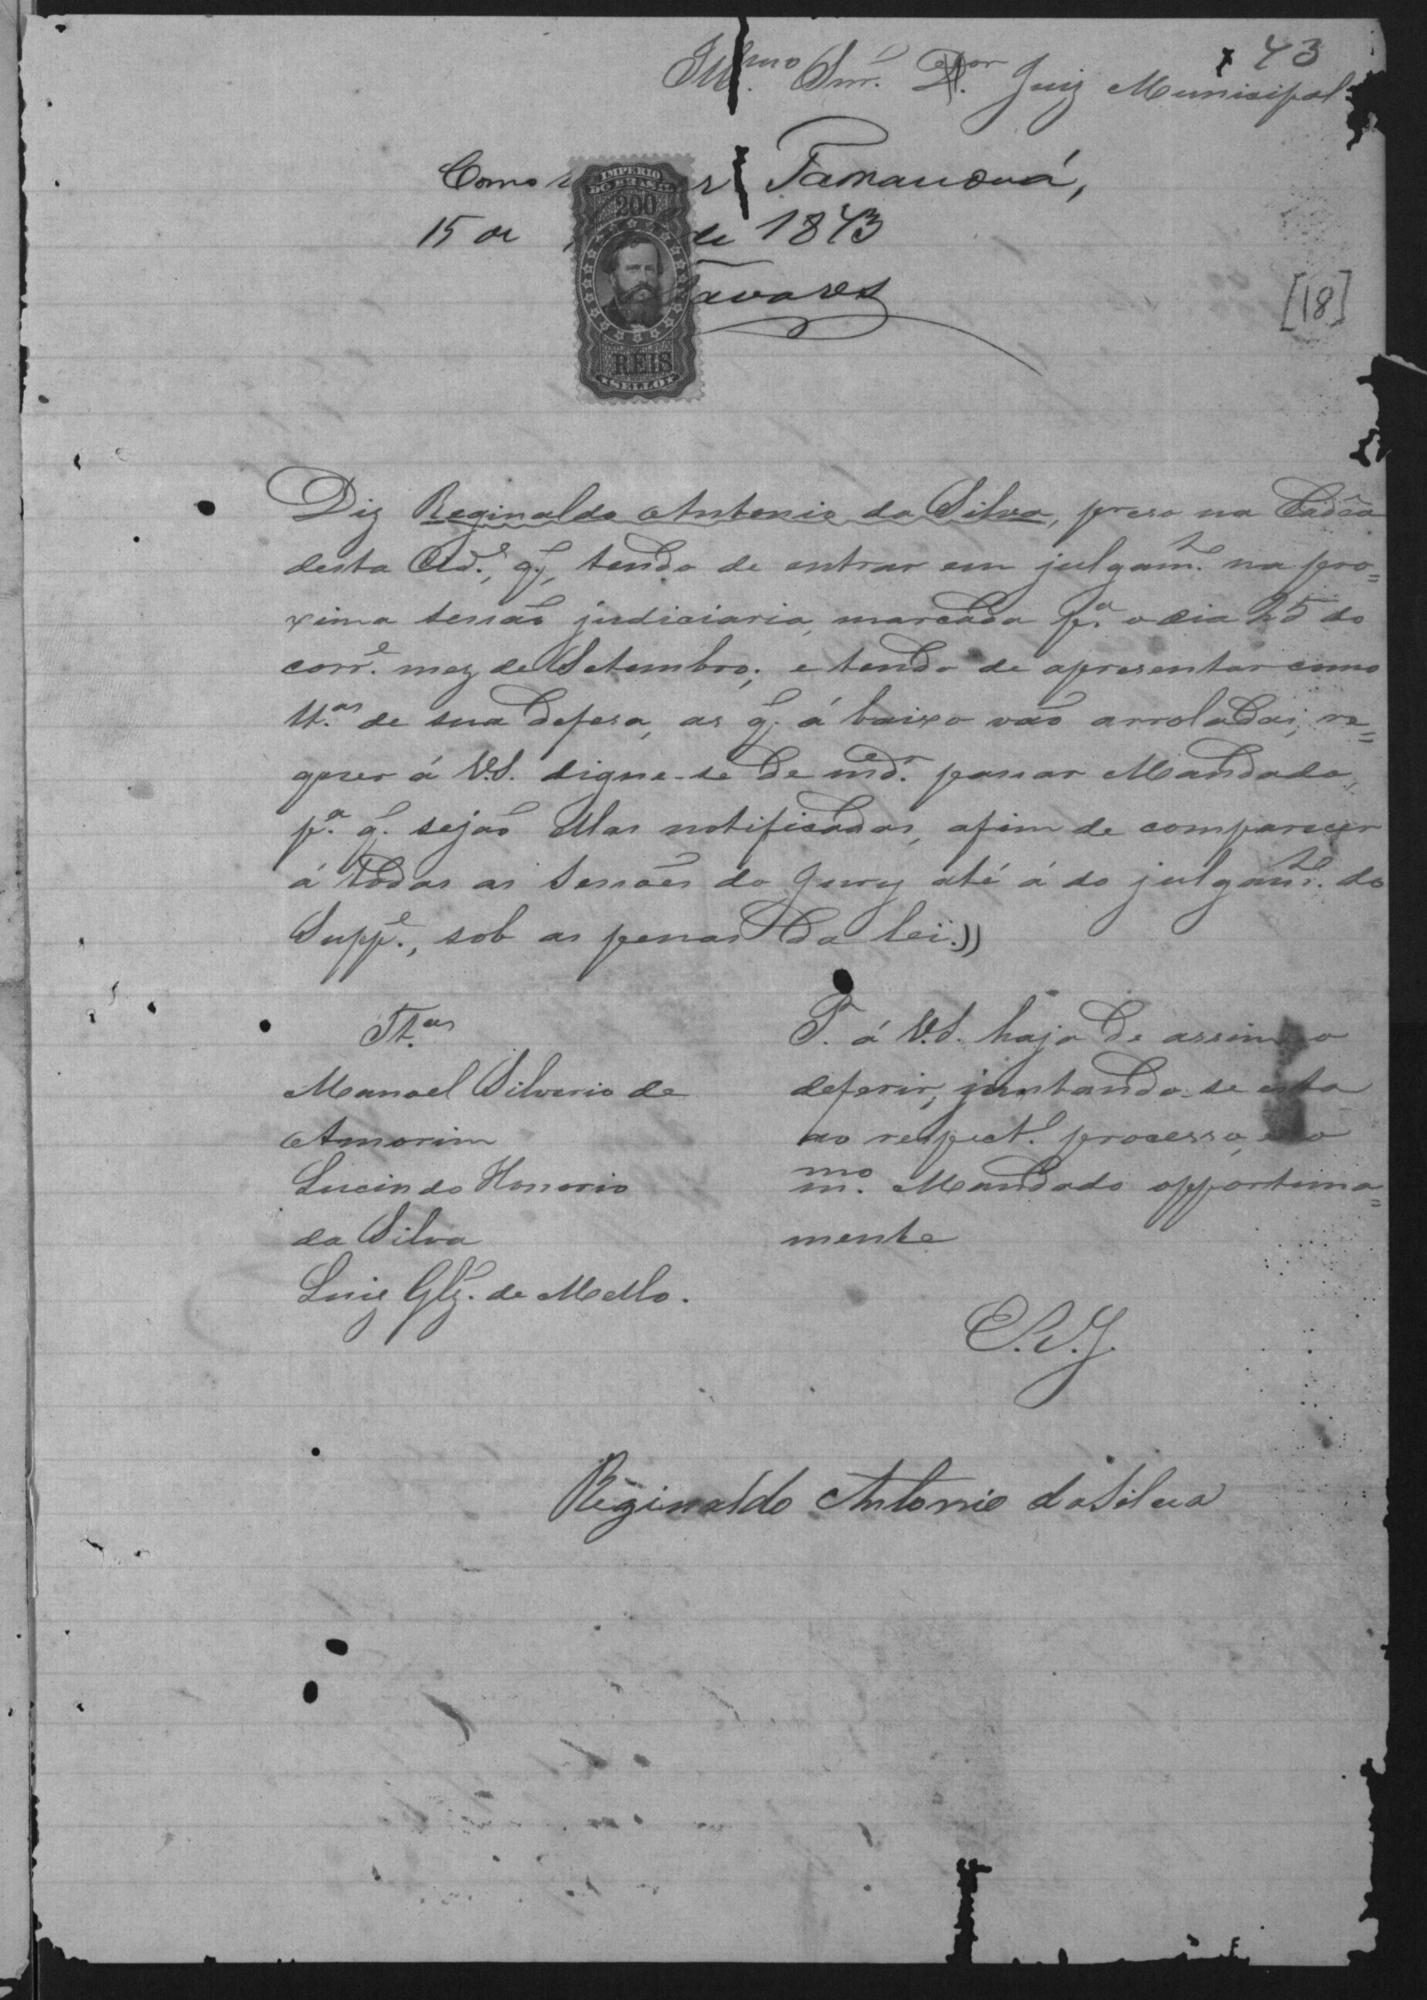 43
Illmo Snr. Dor. Juiz Municipal
Como Tamanduá,
15 de de 1873
Tavares
IMPERIO
DO BRASIL
200
REIS
SELLO
[18]
Diz Reginaldo Antonio da Silva, preso na Cadêa
desta Cid.e, q., tendo de entrar em julgam.to na pro=
xima sessão judiciaria, marcada p.a o dia 25 do
corr.e mez de Setembro; e tendo de apresentar como
tt.as de sua defesa, as q. á baixo vão arroladas, re=
querer á V.S. digne-se de mdr. passar Mandado,
p.a q. sejão ellas notificadas, afim de comparecer
á todas as Sessões do Jury até á do julgam.to do
Supp.e, sob as penas da lei.))
Tt.as
Manoel Silverio de
Amorim
Lucindo Honorio
da Silva
Luiz Glz. de Mello.
P. á V.S. haja de assim o
deferir, juntando-se esta
ao respect. processo, e o
m.mo Mandado opportuna=
mente
E.R.J.
Reginaldo Antonio da Silva